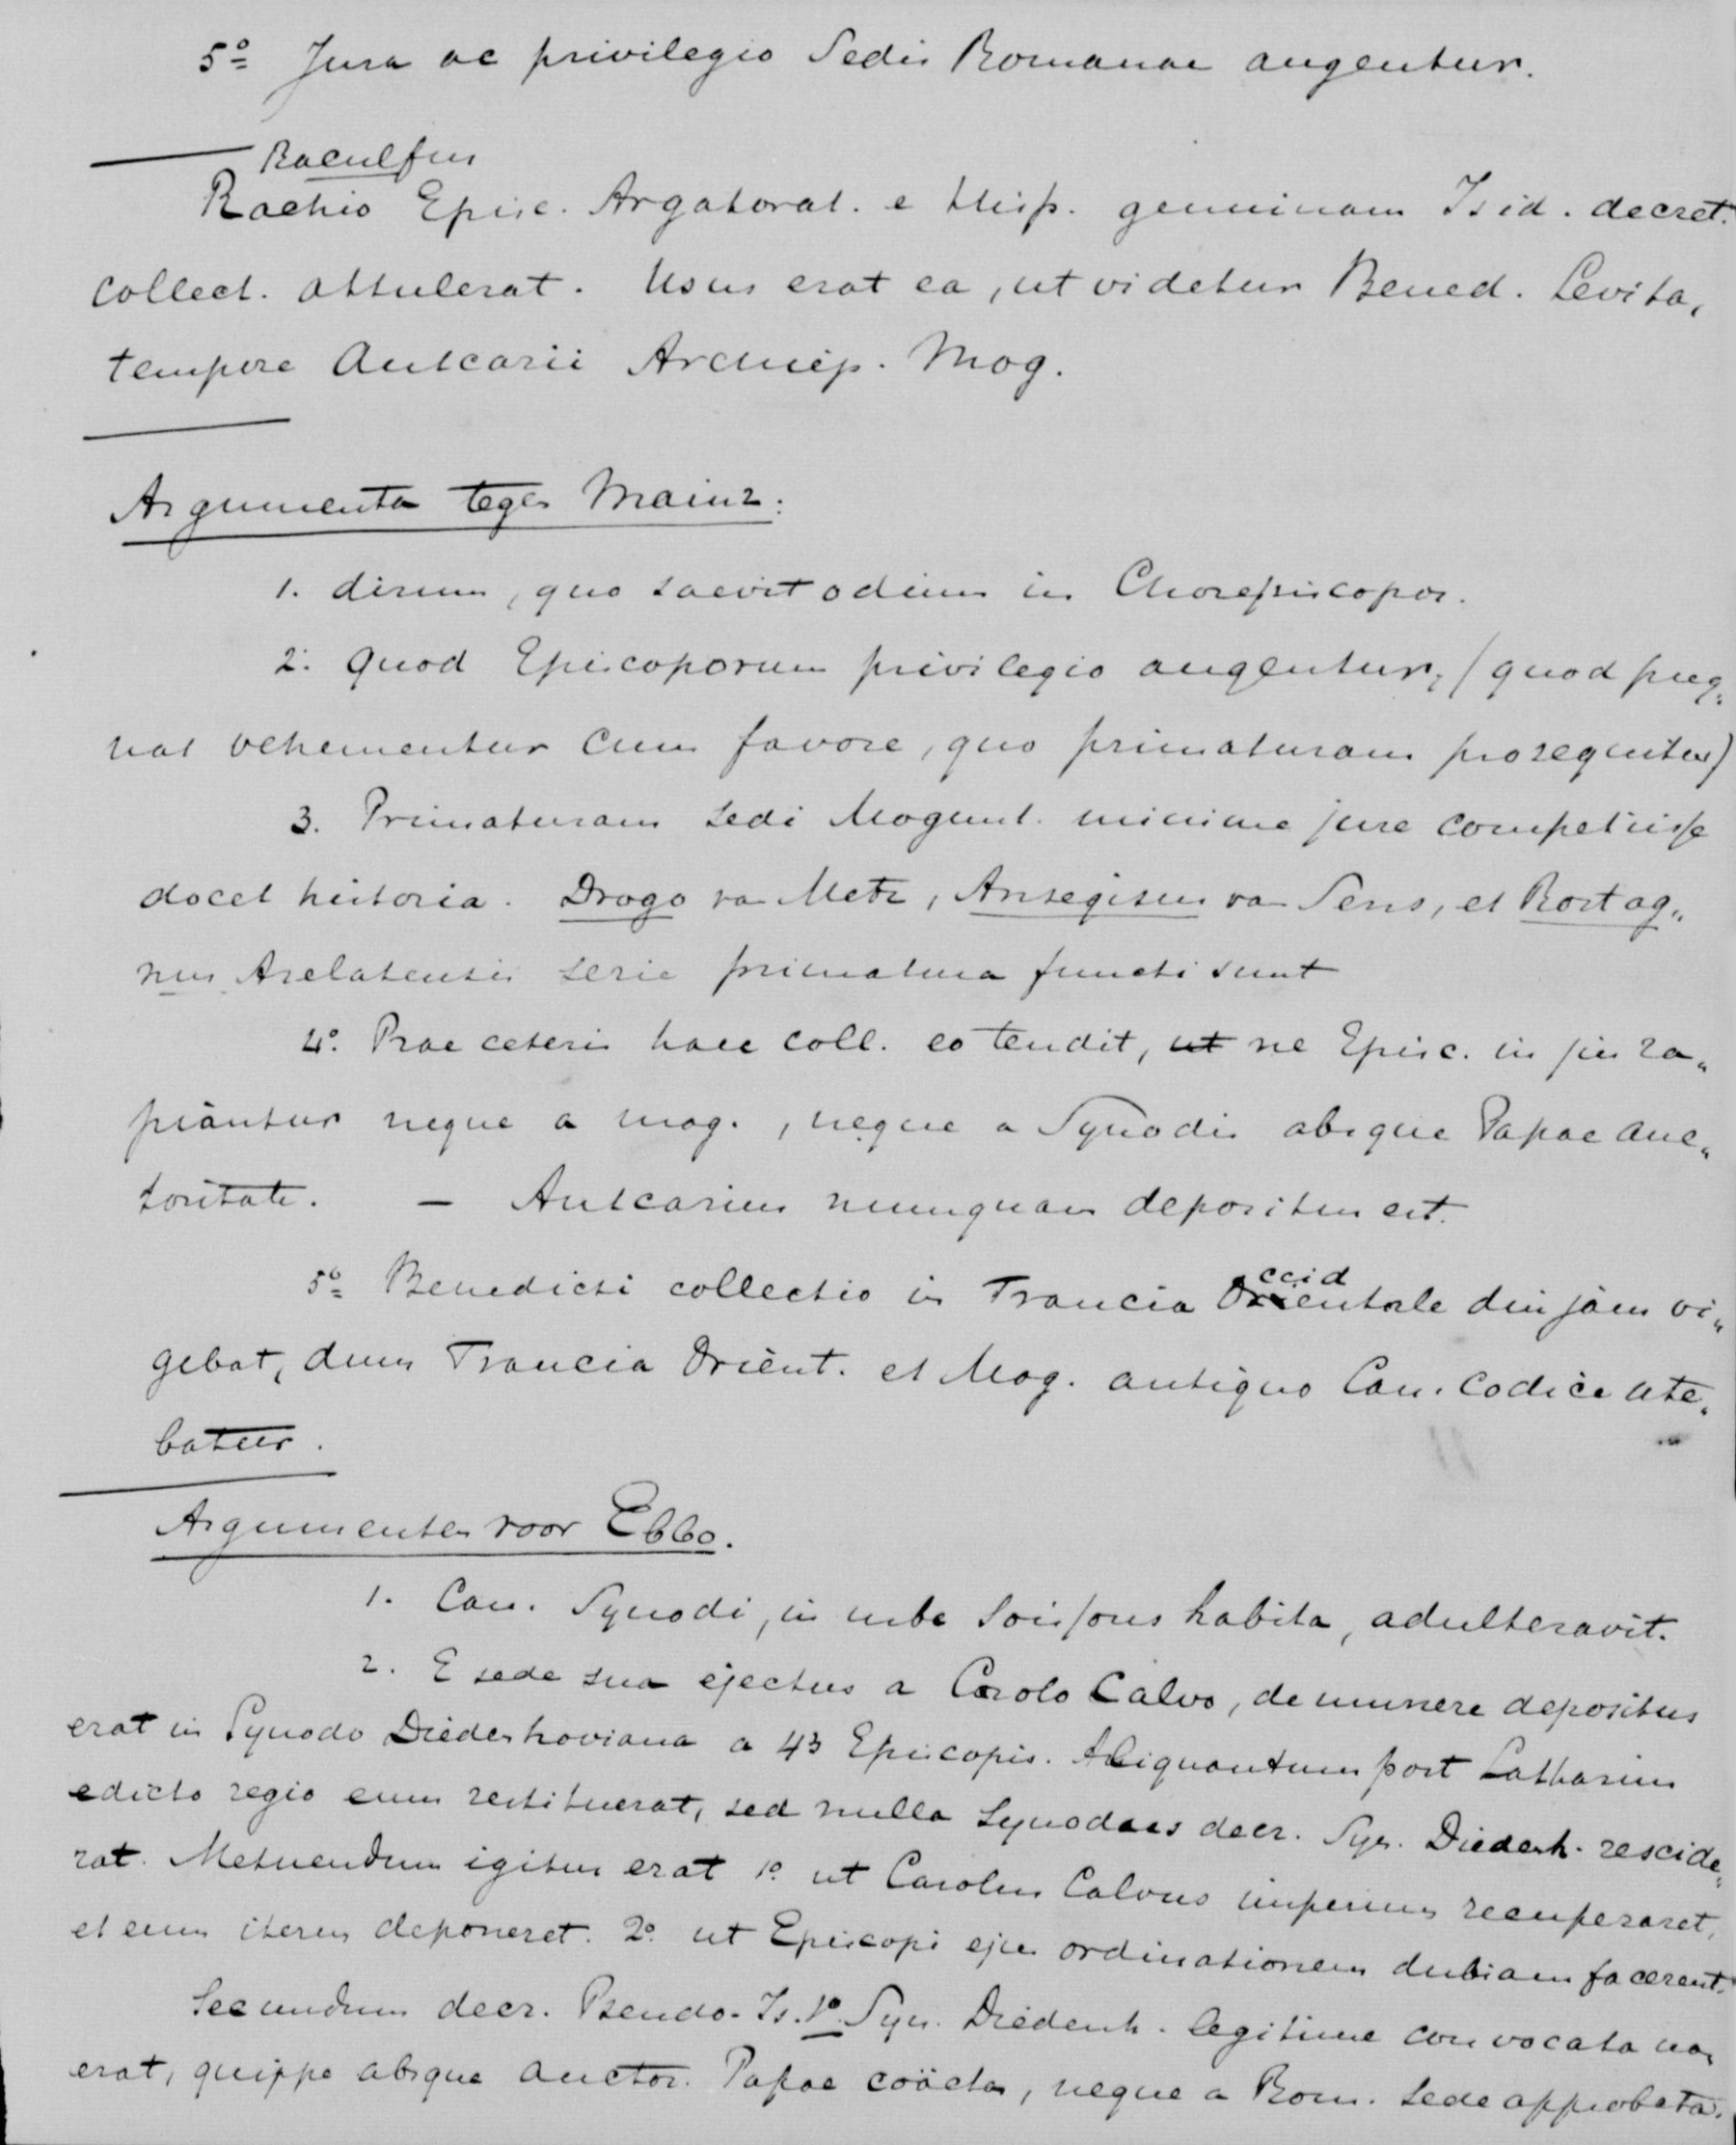 5º Jura ac privilegia Sedis Romanae augentur.
Raculfus
Rachio Episc. Argatorat. e Hisp. genuinam Isid. decret.
collect. attulerat. Usus erat ea, ut videtur Bened. Levita,
tempore Autcarii Archiep. Mog.
Argumenta tegen Mainz:
1. dirum, quo saevit odium in Chorepiscopos.
2. quod Episcoporum privilegia augentur, (quod pug„
nat vehementer cum favore, quo primaturam prosequitur)
3. Primaturam Sedi Mogunt. minime jure competuisse
docet historia. Drogo van Metz, Ansegisus van Sens, et Rostag„
nus Arelatensis serie primatura functi sunt
4º. Prae ceteris haec coll. eo tendit, ut ne Episc. in jus ra„
piantur neque a mag., neque a Synodis absque Papae auc„
toritate. — Autcarius numquam depositus est.
5º Benedicti collectio in Francia Orientale diu jam vi„
ccid
gebat, dum Francia Orient. et Mog. antiquo Can. Codice ute„
batur.
Argumenten voor Ebbo.
1. Can. Synodi, in urbe Soissons habita, adulteravit.
2. E sede sua ejectus a Carolo Calvo, de munere depositus
erat in Synodo Diedenhoviana a 43 Episcopis. Aliquantum post Lotharius
edicto regio eum restituerat, sed nulla Synodus decr. Syn. Diedenh. rescide„
rat. Metuendum igitur erat 1º. ut Carolus Calvus imperium recuperaret,
et eum iterum deponeret. 2º. ut Episcopi ejus ordinationem dubiam facerent.
Secundum decr. Pseudo-Is. 1º. Syn. Diedenh. legitime convocata non
erat, quippe absque auctor. Papae coäcta, neque a Rom. Sede approbata.